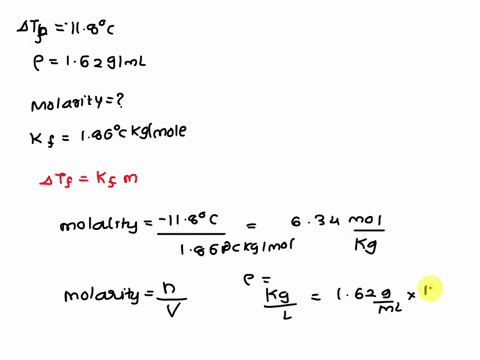 ΔTf = -11.8°C
ρ = 1.62 g/mL
Molarity = ?
Kf = 1.86°C kg/mole
ΔTf = Kf m
molality = -11.8°C / 1.86°C kg/mol = 6.34 mol / Kg
molarity = n / V
ρ = Kg / L = 1.62 g / mL ×